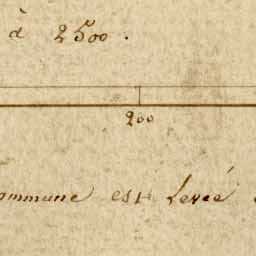 à 2500.
200
ommune est Levée